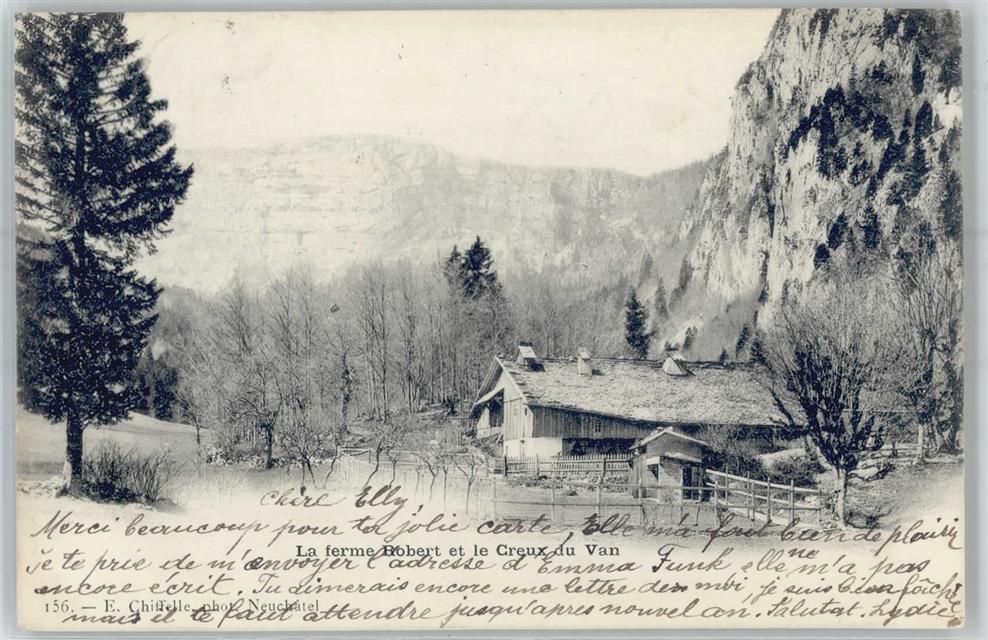 Chère Elly,
Merci beaucoup pour ta jolie carte, Elle m'a fait bien de plaisir
La ferme Robert et le Creux du Van
je te prie de m'envoyer l'adresse d'Emma Funk elle ne m'a pas
encore écrit. Tu aimerais encore une lettre de moi, je suis bien fâché
156. — E. Chiffelle, phot. Neuchâtel
mais il te faut attendre jusqu'apres nouvel an. Salutat.